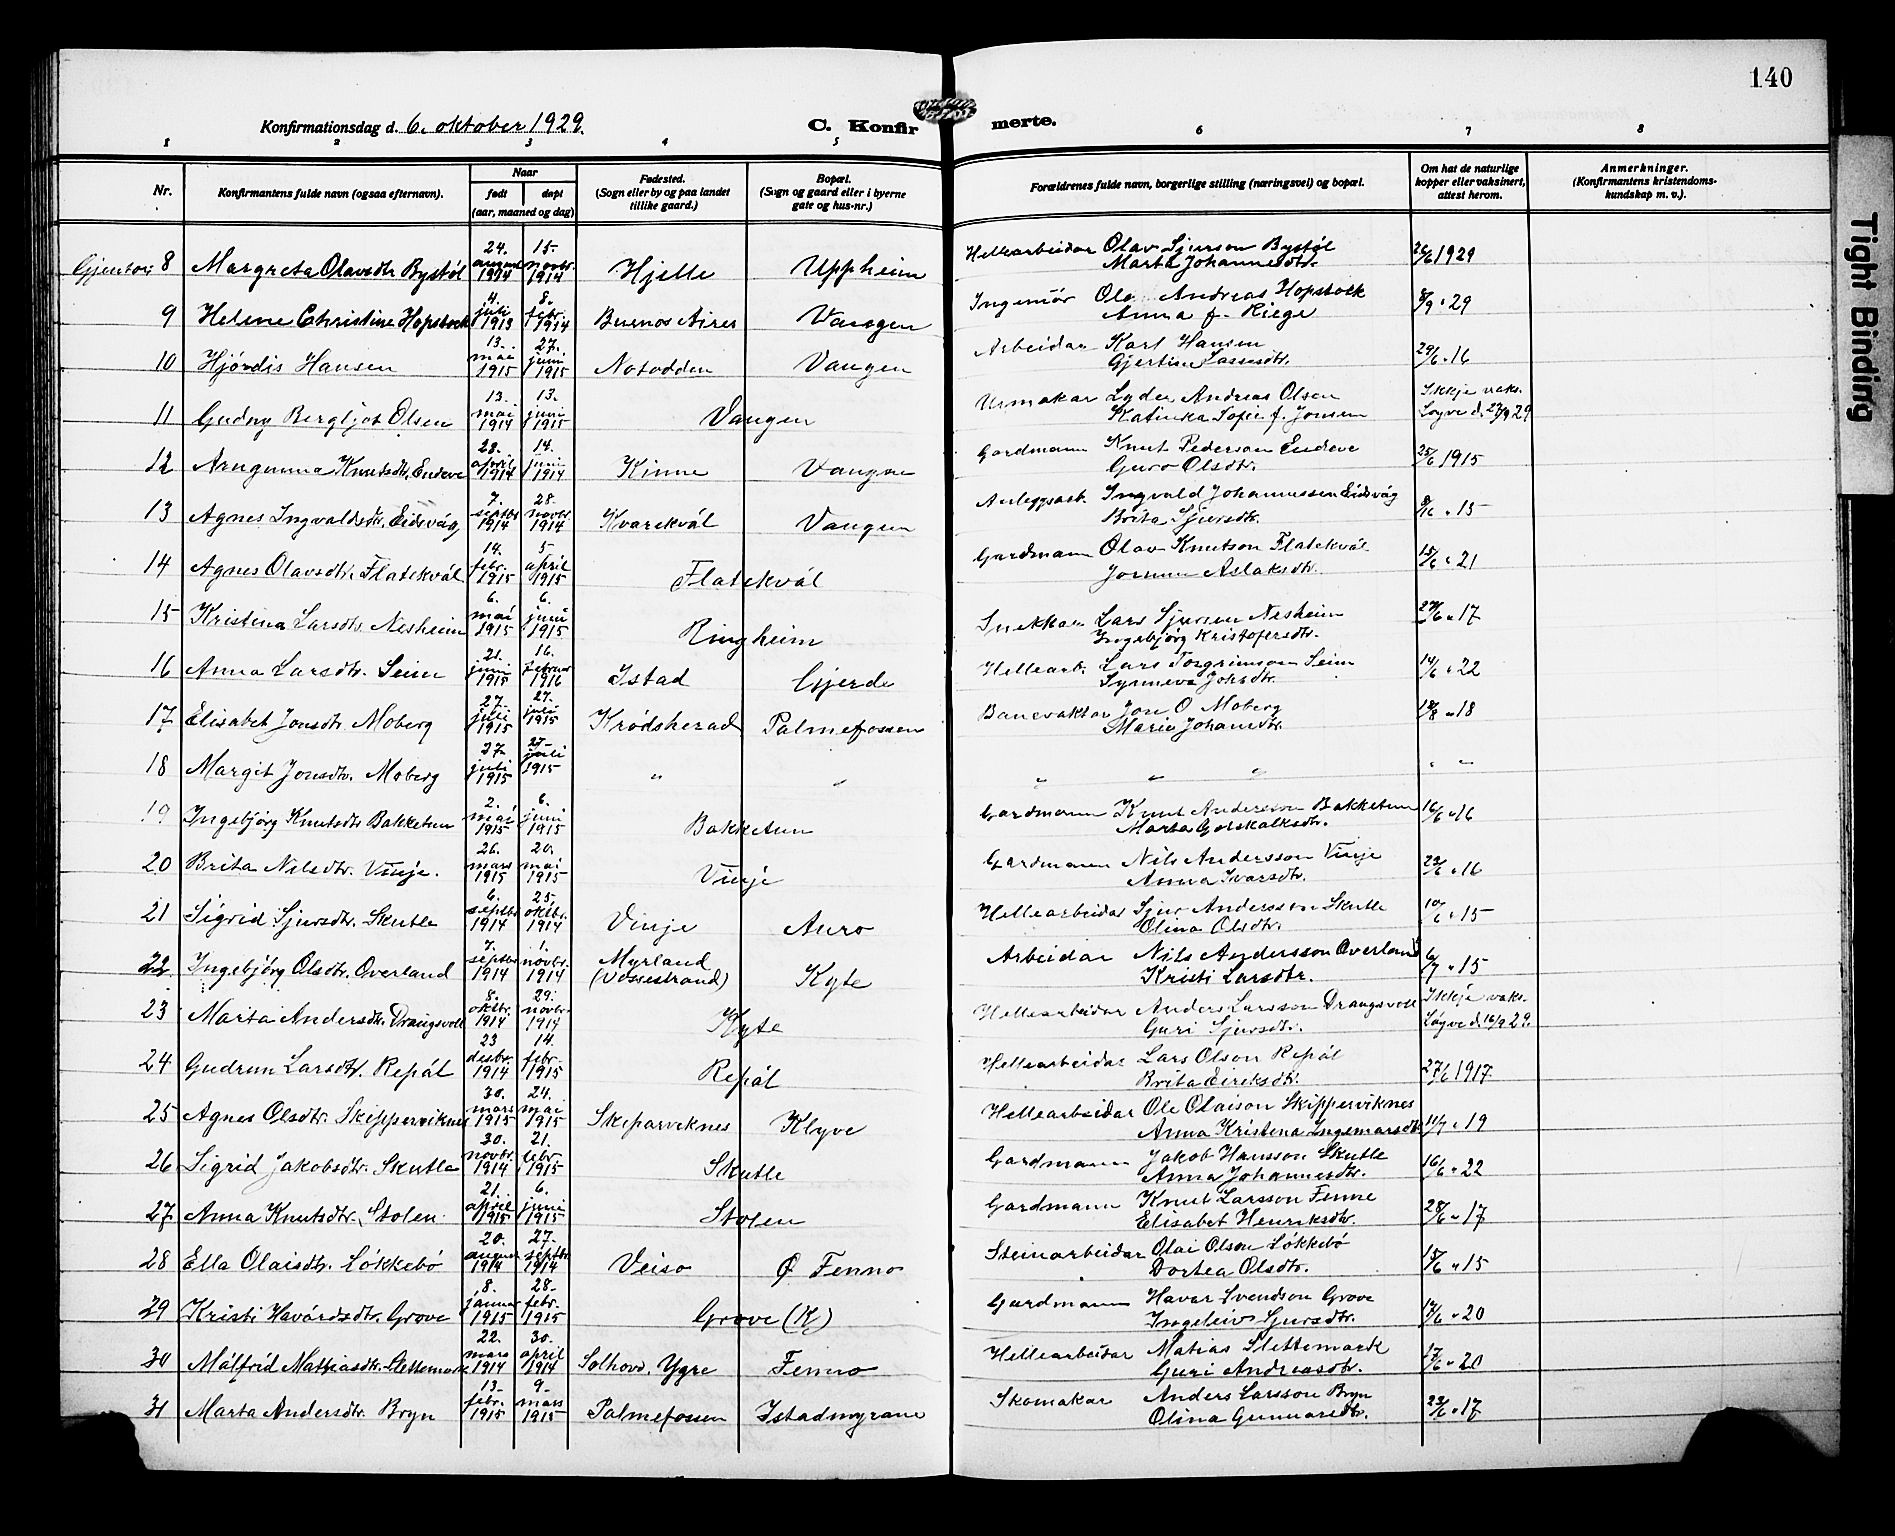 140
Konfirmationsdag d. 6. oktober 1929.
C. Konfirmerte.
1 2 3 4 5 6 7 8
Nr.
Konfirmantens fulde navn (ogsaa efternavn).
Naar
født
døpt
(aar, maaned og dag)
Fødested.
(Sogn eller by og paa landet
tillike gaard.)
Bopæl.
(Sogn og gaard eller i byerne
gate og hus-nr.)
Forældrenes fulde navn, borgerlige stilling (næringsvei) og bopæl.
Om hat de naturlige
kopper eller vaksinert,
attest herom.
Anmerkninger.
(Konfirmantens kristendoms-
kundskap m. v.).
Gjentor: 8 Margreta Olavsdtr. Bystøl 24. august 1914 15. novbr. 1914 Hjelle Uppheim Hellearbeidar Olav Sjurson Bystøl 26/6 1929
Marta Johannesdtr.
9 Helene Christine Hopstock 4. juli 1913 8. febr. 1914 Buenos Aires Vangen Ingeniør Ole Andreas Hopstock 8/9 " 29
Anna f. Riege
10 Hjørdis Hansen 13. mai 1915 27. juni 1915 Notodden Vangen Arbeidar Karl Hansen 29/6 " 16
Gjertine Lassesdtr.
11 Gudny Bergljot Olsen 13. mai 1914 13. juni 1915 Vangen Urmakar Lyder Andreas Olsen Ikkje vaks.
Katinka Sofie f. Jonsen Løyve d. 27/9 29
12 Arngunna Knutsdtr. Endeve 28. april 1914 14. juni 1914 Kinne Vangen Gardmann Knut Pederson Endeve 25/6 1915
Guro Olsdtr.
13 Agnes Ingvaldsdtr. Eidsvåg 7. septbr. 1914 28. novbr. 1914 Kvarekvål Vangen Anleggsarb. Ingvald Johannessen Eidsvåg 8/6 " 15
Brita Sjursdtr.
14 Agnes Olavsdtr. Flatekvål 14. febr. 1915 5. april 1915 Flatekvål Gardmann Olav Knutson Flatekvål 15/6 " 21
Jorunn Aslaksdtr.
15 Kristina Larsdtr. Nesheim 6. mai 1915 6. juni 1915 Ringheim Snekkar Lars Sjurson Nesheim 27/6 " 17
Ingebjørg Kristofersdtr.
16 Anna Larsdtr. Seim 21. juni 1915 16. februar 1916 Istad Gjerde Hellearb. Lars Torgrimson Seim 14/6 " 22
Synneva Johsdtr.
17 Elisabet Jonsdtr. Moberg 27. juli 1915 27. juli 1915 Krødsherad Palmefossen Banevaktar Jon O. Moberg 18/8 " 18
Maria Johansdtr.
18 Margit Jonsdtr. Moberg 27. juli 1915 27. juli 1915 " " " " " " "
19 Ingebjørg Knutsdtr. Bakketun 2. mai 1915 6. juni 1915 Bakketun Gardmann Knut Andersson Bakketun 16/6 " 16
Marta Gotskalksdtr.
20 Brita Nilsdtr. Vinje. 26. mars 1915 20. mai 1915 Vinje Gardmann Nils Andersson Vinje 23/6 " 16
Anna Ivarsdtr.
21 Sigrid Sjursdtr. Skutle 6. septbr. 1914 25. oktbr. 1914 Vinje Auro Hellearbeidar Sjur Andersson Skutle 10/6 " 15
Olina Olsdtr.
22 Ingebjørg Olsdtr. Øverland 7. septbr. 1914 1. novbr. 1914 Myrland (Vossestrand) Kyte Arbeidar Nils Andersson Øverland 6/7 " 15
Kristi Larsdtr.
23 Marita Andersdtr. Drangsvoll 8. oktbr. 1914 29. novbr. 1914 Kyte Hellearbeidar Anders Larsson Drangsvoll Ikkje vaks.
Guri Sjursdtr. Løyve d. 16/9 29.
24 Gudrun Larsdtr. Repål 23 desbr. 1914 14. febr. 1915 Repål Hellearbeidar Lars Olson Repål 27/6 1917
Brita Eiriksdtr.
25 Agnes Olsdtr. Skipperviknes 30. mars 1915 24. mai 1915 Skiparviknes Klyve Hellearbeidar Ole Olaison Skipperviknes 11/7 " 19
Anna Kristina Ingemarsdtr.
26 Sigrid Jakobsdtr. Skutle 30. novbr. 1914 21. febr. 1915 Skutle Gardmann Jakob Hansson Skutle 16/6 " 22
Anna Johannesdtr.
27 Anna Knutsdtr. Stolen 21. april 1915 6. juni 1915 Stolen Gardmann Knut Larsson Fenne 28/6 " 17
Elisabet Henriksdtr.
28 Ella Olaisdtr. Løkkebø 20. august 1914 27. septbr. 1914 Veiso Ø Fenno Steinarbeidar Olai Olson Løkkebø 15/6 " 15
Dortea Olsdtr.
29 Kristi Havårdsdtr. Grove 8. januar 1915 28. febr. 1915 Grove (K) Gardmann Havar Svendson Grove 17/6 " 20
Ingeleiv Sjursdtr.
30 Målfrid Matiasdtr. Slettemark 22. mars 1914 30. april 1914 Solhov, Ygre Fenno Hellearbeidar Matias Slettemark 17/6 " 20
Guri Andreasdtr.
31 Marta Andersdtr. Bryn 13. febr. 1915 9. mars 1915 Palmefossen Istadmyrane Skomakar Anders Larsson Bryn 23/6 " 17
Olina Gunnarsdtr.
Tight Binding